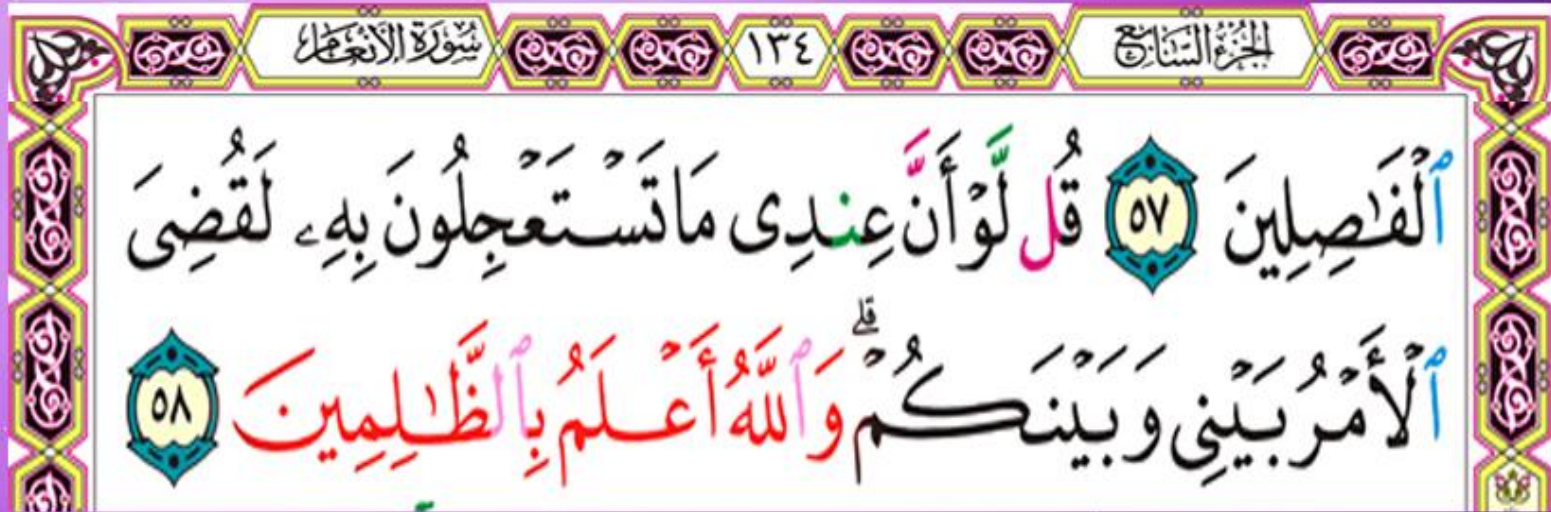 الجُزْءُ السَّابِعُ ١٣٤ سُورَةُ الأَنْعَامِ
ٱلْفَٰصِلِينَ ٥٧ قُل لَّوْ أَنَّ عِندِى مَا تَسْتَعْجِلُونَ بِهِۦ لَقُضِىَ
ٱلْأَمْرُ بَيْنِى وَبَيْنَكُمْ ۗ وَٱللَّهُ أَعْلَمُ بِٱلظَّٰلِمِينَ ٥٨